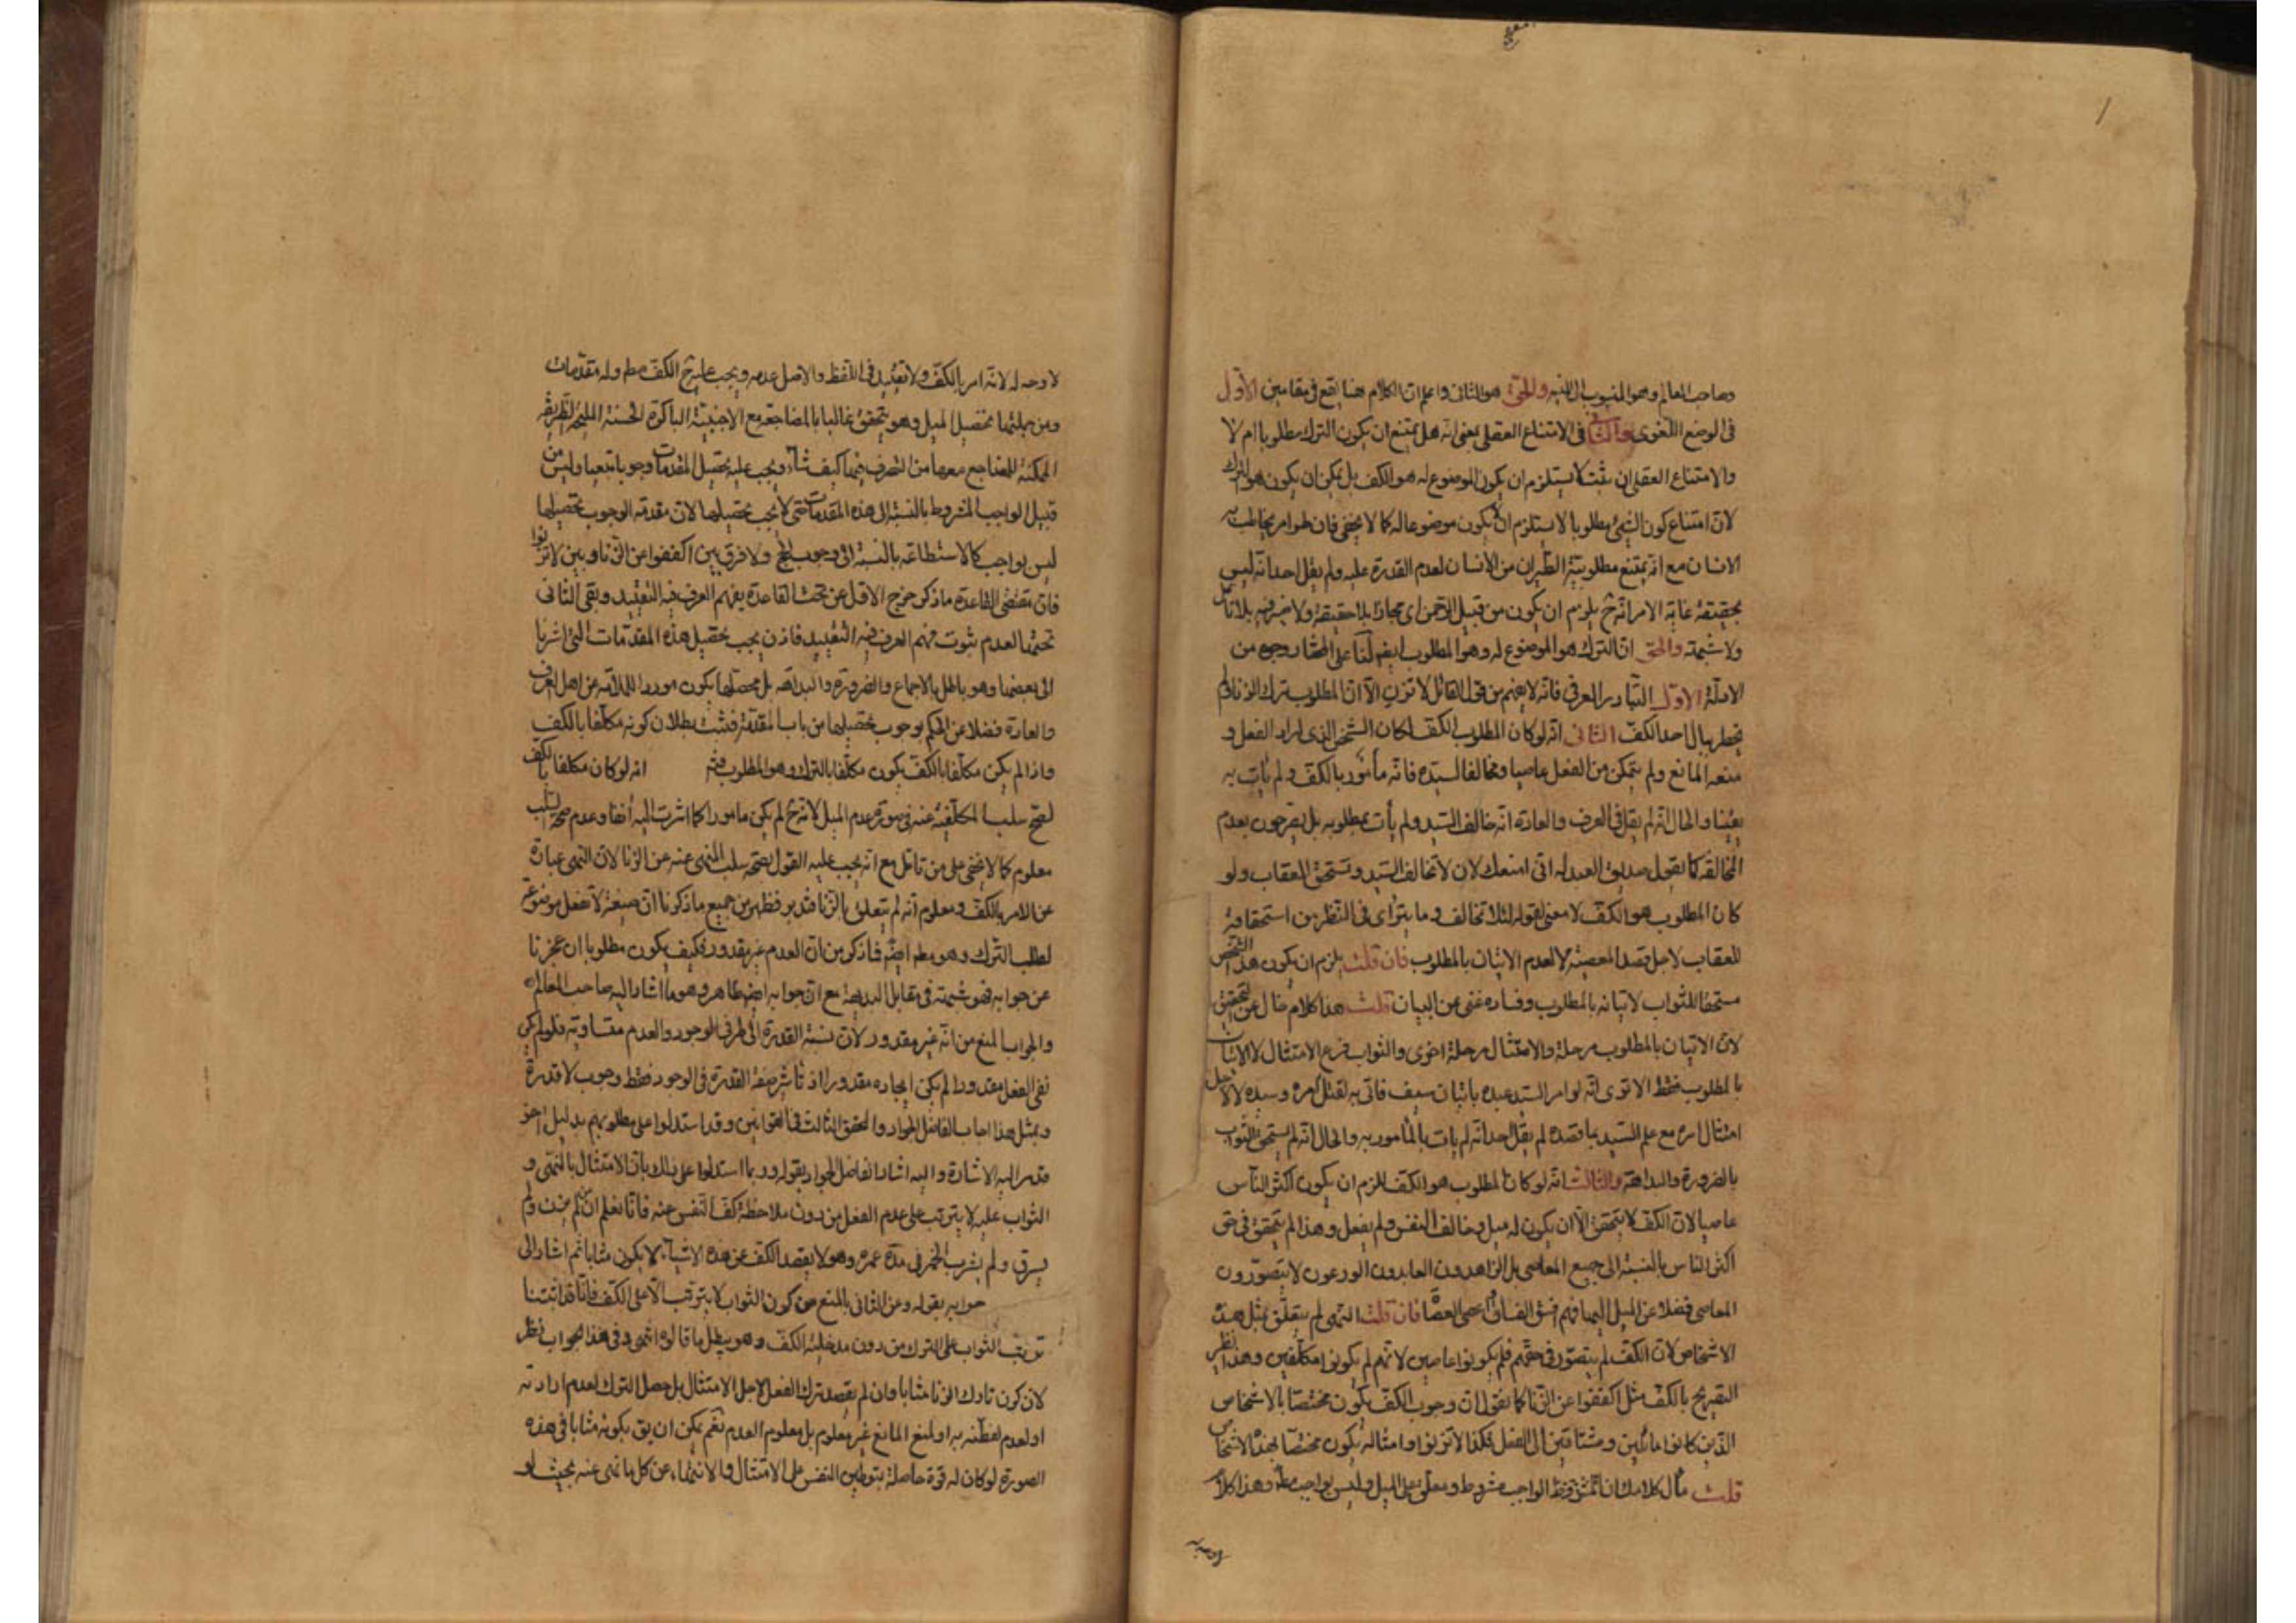 وصاحب المعالم وهو المنسوب الى النبيه والحق هو الثانى واعلم ان الكلام هنا يقع فى مقامين الأول
فى الوضع اللغوى والثانى فى الامتناع العقلى بمعنى انه هل يمتنع ان يكون الترك مطلوبا ام لا
والامتناع العقلى ان ثبت لا يستلزم ان يكون الموضوع له هو الكف بل يمكن ان يكون هو الترك
لان امتناع كون الشىء مطلوبا لا يستلزم ان لا يكون موضوعا له كما لا يخفى فان طر امر يخاطب به
الانسان مع انه يمتنع مطلوبية الطيران من الانسان لعدم القدرة عليه ولم يقل احد انه ليس
بحقيقة غاية الامر انه ح يلزم ان يكون من قبيل الرحمن اى مجاز بلا حقيقة ولا ضير فيه بلا تأمل
ولا شبهة والحق ان الترك هو الموضوع له وهو المطلوب ايضا لنا على المختار وجوه من
الادلة الاول التبادر العرفى فانه لا يفهم من قول القائل لا تزن الا ان المطلوب ترك الزنا ولم
يخطر ببال احد الكف الثانى انه لو كان المطلوب الكف لكان الشخص الذى اراد الفعل و
منعه المانع ولم يتمكن من الفعل عاصيا ومخالفا لسيده فانه مأمور بالكف ولم يأت به
يقينا والحال انه لم يقل فى العرف والعادة انه خالف السيد ولم يأت بمطلوبه بل يصرحون بعدم
المخالفة كما يقول صديق العبد له انى امنعك لان لا تخالف السيد وتستحق العقاب ولو
كان المطلوب هو الكف لا معنى لقوله لئلا تخالف وما يترائ فى النظر من استحقاقه
للعقاب لاجل قصد المعصية لا لعدم الاتيان بالمطلوب فان قلت يلزم ان يكون هذا الشخص
مستحقا للثواب لاتيانه بالمطلوب وفساده غنى عن البيان قلت هذا كلام خال عن التحقيق
لان الاتيان بالمطلوب مرحلة والامتثال مرحلة اخرى والثواب فرع الامتثال لا الاتيان
بالمطلوب فقط الا ترى انه لو امر السيد عبده باتيان سيف فاتى به لقتل سيده لا لاجل
امتثال امره مع علم السيد بما قصده لم يقل احد انه لم يات بالمأمور به والحال انه لم يستحق الثواب
بالضرورة والبداهة والثالث انه لو كان المطلوب هو الكف للزم ان يكون اكثر الناس
عاصيا لان الكف لا يتحقق الا ان يكون له ميل وخالف النفس ولم يفعل وهذا لم يتحقق فى حق
اكثر الناس بالنسبة الى جميع المعاصى بل الزاهدون العابدون الورعون لا يتصورون
المعاصى فضلا عن الميل اليها فهم افسق الفساق واعصى العصاة فان قلت النهى لم يتعلق بمثل هذه
الاشخاص لان الكف لم يتصور فى حقهم فلم يكونوا عاصين لانهم لم يكونوا مكلفين وهذا نظير
التصريح بالكف مثل اكففوا عن الزنا كما نقول ان وجوب الكف يكون مختصا بالاشخاص
الذين كانوا مائلين ومشتاقين الى الفعل فكذا لا تزنوا وامثاله يكون مختصا بهذه الاشخاص
قلت مأل كلامك ان الواجب مشروط ومعلق على الميل وليس بواجب مطلق وهذا كلام
لا وجه له
لا وجه له لانه امر بالكف ولا تقييد فى اللفظ والاصل عدمه ويجب عليه ح الكف مطم وله مقدمات
ومن جملتها تحصيل الميل وهو يتحقق غالبا بالمضاجعة مع الاجنبية الباكرة الحسنة المليحة الظريفة
الممكنة للمضاجع معها من التصرف فيها كيف شاء ويجب عليه تحصيل المقدمات وجوبا تبعيا وليس من
قبيل الواجب المشروط بالنسبة الى هذه المقدمات حتى لا يجب تحصيلها لان مقدمة الوجوب تحصيلها
ليس بواجب كالاستطاعة بالنسبة الى وجوب الحج ولا فرق بين اكففوا عن الزنا وبين لا تزنوا
فان مقتضى القاعدة ما ذكر خرج الاول عن تحت القاعدة بفهم العرف فيه التقييد وبقى الثانى
تحتها لعدم ثبوت فهم العرف فيه التقييد فاذن يجب تحصيل هذه المقدمات التى اشرنا
الى بعضها وهو باطل بالاجماع والضرورة والبداهة بل محصلها يكون موردا للملامة عن اهل العرف
والعادة فضلا عن الحكم بوجوب تحصيلها من باب المقدمة فثبت بطلان كونه مكلفا بالكف
واذا لم يكن مكلفا بالكف يكون مكلفا بالترك وهو المطلوب فثم انه لو كان مكلفا بالكف
لصح سلب المكلفية عنه فى صورة عدم الميل لانه ح لم يكن مامورا كما اشرت اليه انفا وعدم صحة السلب
معلوم كما لا يخفى على من تامل مع انه يجب عليه القول بصحة سلب المنهى عنه عن الزنا لان النهى عبارة
عن الامر بالكف ومعلوم انه لم يتعلق بالزنا فتدبر فظهر من جميع ما ذكرنا ان صيغة لا تفعل موضوعة
لطلب الترك وهو مطم ايضا فما ذكر من ان العدم غير مقدور فكيف يكون مطلوبا ان عجزنا
عن جوابه فهو شبهة فى مقابل البديهة مع ان جوابه ايضا ظاهر وهو ما اشار اليه صاحب المعالم
والجواب المنع من انه غير مقدور لان نسبة القدرة الى طرفى الوجود والعدم متساوية فلو لم يكن
نفى الفعل مقدورا لم يكن ايجاده مقدورا اذ تأثير صفة القدرة فى الوجود فقط وجوب لا قدرة
وبمثل هذا اجاب الفاضل الجواد والمحقق الثالث فى القوانين وقد استدلوا على مطلوبهم بدليل اخر
قد مر اليه الاشارة واليه اشار الفاضل الجواد بقوله وربما استدلوا على ذلك بان الامتثال بالنهى و
الثواب عليه لا يترتب على عدم الفعل من دون ملاحظة كف النفس عنه فانا نعلم ان من لم يزن ولم
يسرق ولم يشرب الخمر فى مدة عمره وهو لا يقصد الكف عن هذه الاشياء لا يكون مثابا ثم اشار الى
جوابه بقوله وعن الثانى بالمنع من كون الثواب لا يترتب الا على الكف فانا قد اثبتنا
ترتب الثواب على الترك من دون مدخلية الكف وهو يبطل ما قالوه انتهى وفى هذا الجواب نظر
لان كون تارك الزنا مثابا وان لم يقصد ترك الفعل لاجل الامتثال بل حصل الترك لعدم ارادته
او لعدم تفطنه به او لمنع المانع غير معلوم بل معلوم العدم نعم يمكن ان يق بكونه مثابا فى هذه
الصورة لو كان له قوة حاصلة بتوطين النفس على الامتثال والانتهاء عن كل ما نهى عنه بحيث لو